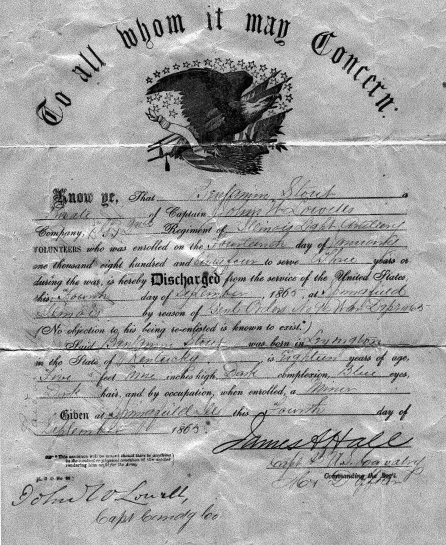 To all whom it may Concern:
Know ye, That Benjamin Stout a
Private of Captain John W Lowells
Company, Regiment of Illinois Light Artillery
VOLUNTEERS who was enrolled on the fourteenth day of January
one thousand eight hundred and to serve Three years or
during the war, is hereby Discharged from the service of the United States
this Fourth day of September 1865, at Springfield
Illinois by reason of Genl Orders War Dept
(No objection to his being re-enlisted is known to exist.)
Said Benjamin Stout was born in Lexington
in the State of Kentucky is Eighteen years of age,
Five feet nine inches high, Dark complexion, Blue eyes,
Dark hair, and by occupation, when enrolled, a
Given at Springfield Ills this Fourth day of
September 1865
James A Hall
Capt Cavalry
Commanding the Reg't.
John W Lowell
Capt Comdg Co